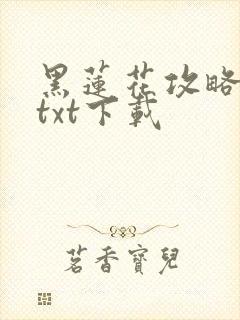 黑蓮花攻略
txt下載
茗香寶兒